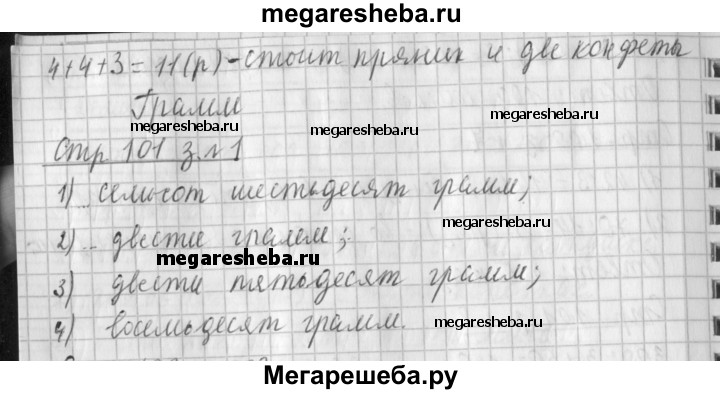 megaresheba.ru
4+4+3=11(р) - стоит пряник и две конфеты
Грамм
megaresheba.ru
megaresheba.ru
megaresheba.ru
Стр. 101 з.№1
1) семьсот шестьдесят грамм;
megaresheba.ru
2) двести грамм;
megaresheba.ru
3) двести пятьдесят грамм;
4) восемьдесят грамм.
megaresheba.ru
Мегарешеба.ру